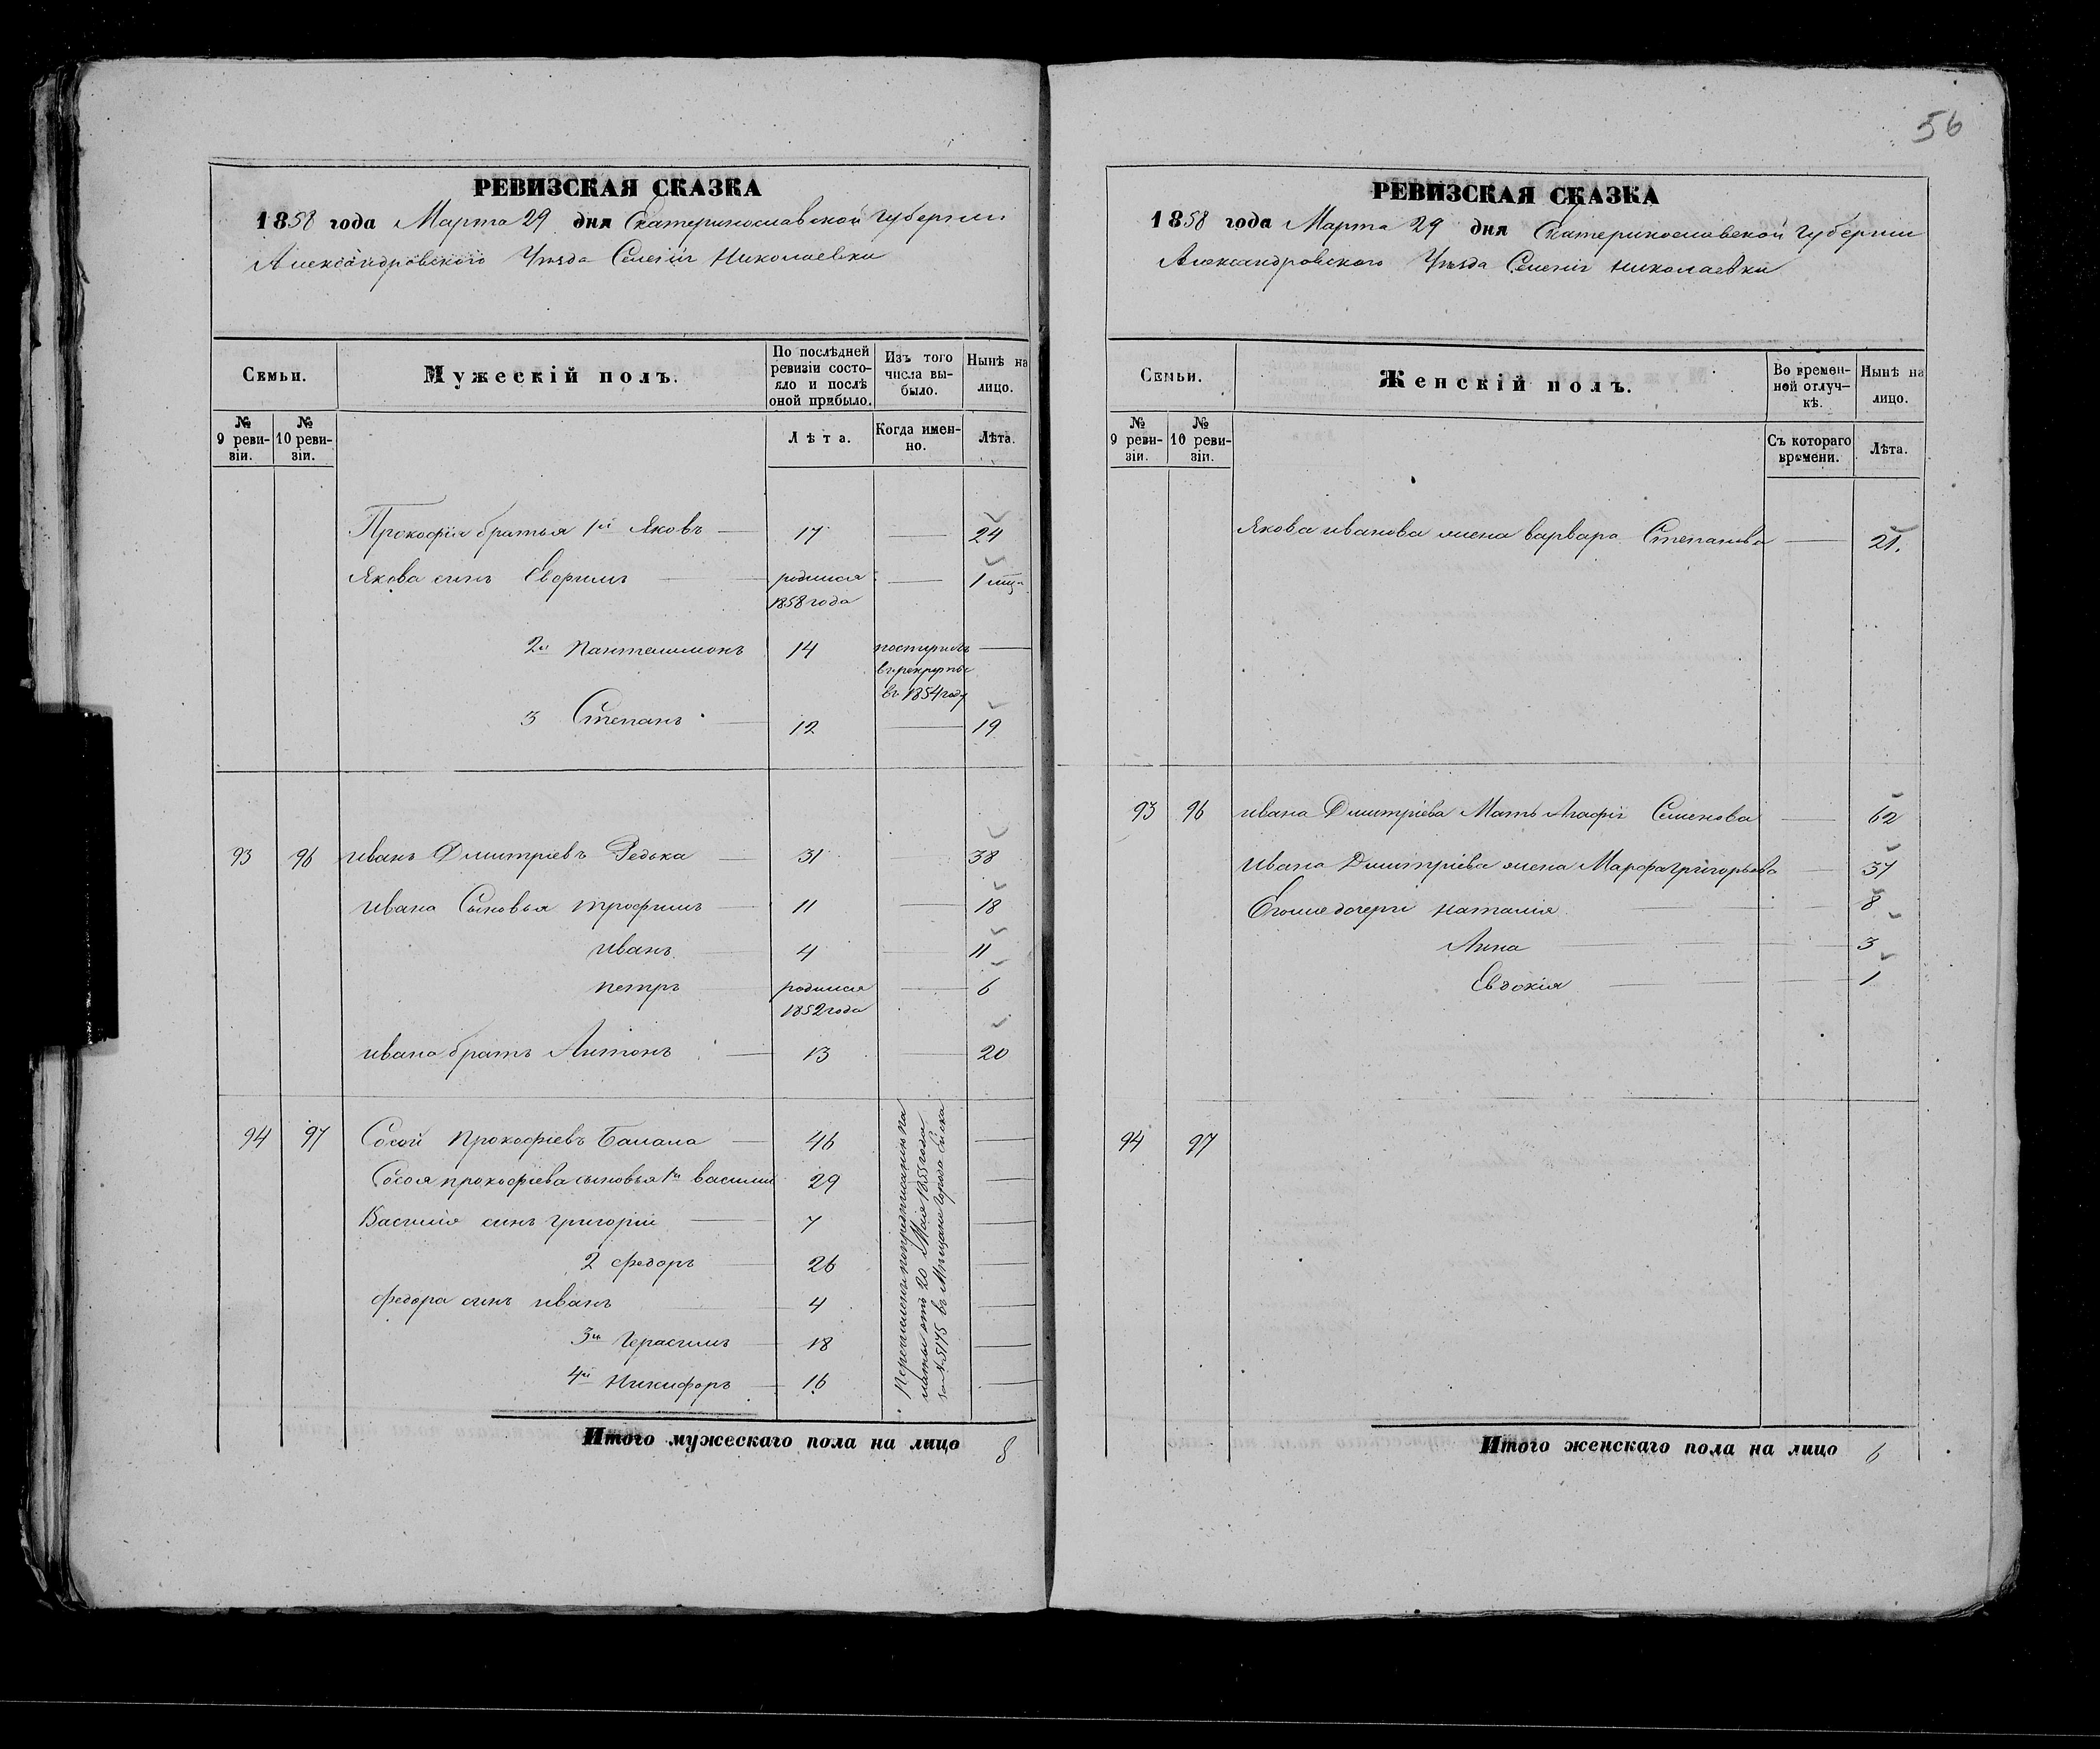 56
РЕВИЗСКАЯ СКАЗКА
1858 года Марта 29 дня Екатеринославской Губернии
Александровского Уезда Селенія Николаевки
Семьи.
Мужескій полъ.
По послѣдней ревизіи состо-
яло и послѣ оной прибыло.
Изъ того числа вы-
было.
Нынѣ на лицо.
№ 9 реви-
зіи.
№ 10 реви-
зіи.
Лѣта.
Когда имен-
но.
Лѣта.
Прокофія братья 1й Яковъ 17 24
Якова сынъ родился 1 мца
1858 года
2й Пантелимонъ 14 поступилъ
в рекруты
въ 1854 году
3 Степанъ 12 19
93 96 иванъ Дмитріевъ Редька 31 38
ивана Сыновья трофимъ 11 18
иванъ 4 11
петръ родился 6
1852 года
ивана братъ Антонъ 13 20
94 97 Сосой Прокофіевъ Балала 46
Сосоя прокофіева сыновья 1й василий 29
Василія сынъ григорій 7
2 федоръ 26
федора сынъ иванъ 4
3й Герасимъ 18
4й Никифоръ 16
Перечислены по предписанію па
латы отъ 20 Мая 1855 года
за № 5175 въ Мещане города Ейска
Итого мужескаго пола на лицо 8
РЕВИЗСКАЯ СКАЗКА
1858 года Марта 29 дня Екатеринославской Губернии
Александровского Уезда Селенія Николаевки
Семьи.
Женскій полъ.
Во времен-
ной отлуч-
кѣ.
Нынѣ на лицо.
№ 9 реви-
зіи.
№ 10 реви-
зіи.
Съ котораго времени.
Лѣта.
Якова иванова жена варвара Степанова 21.
93 96 ивана Дмитріева Мать Агафія Семенова 62
Ивана Дмитріева жена Марфа григорьева 37
Егоже дочери наталия 8
Анна 3
Евдокія 1
94 97
Итого женскаго пола на лицо 6